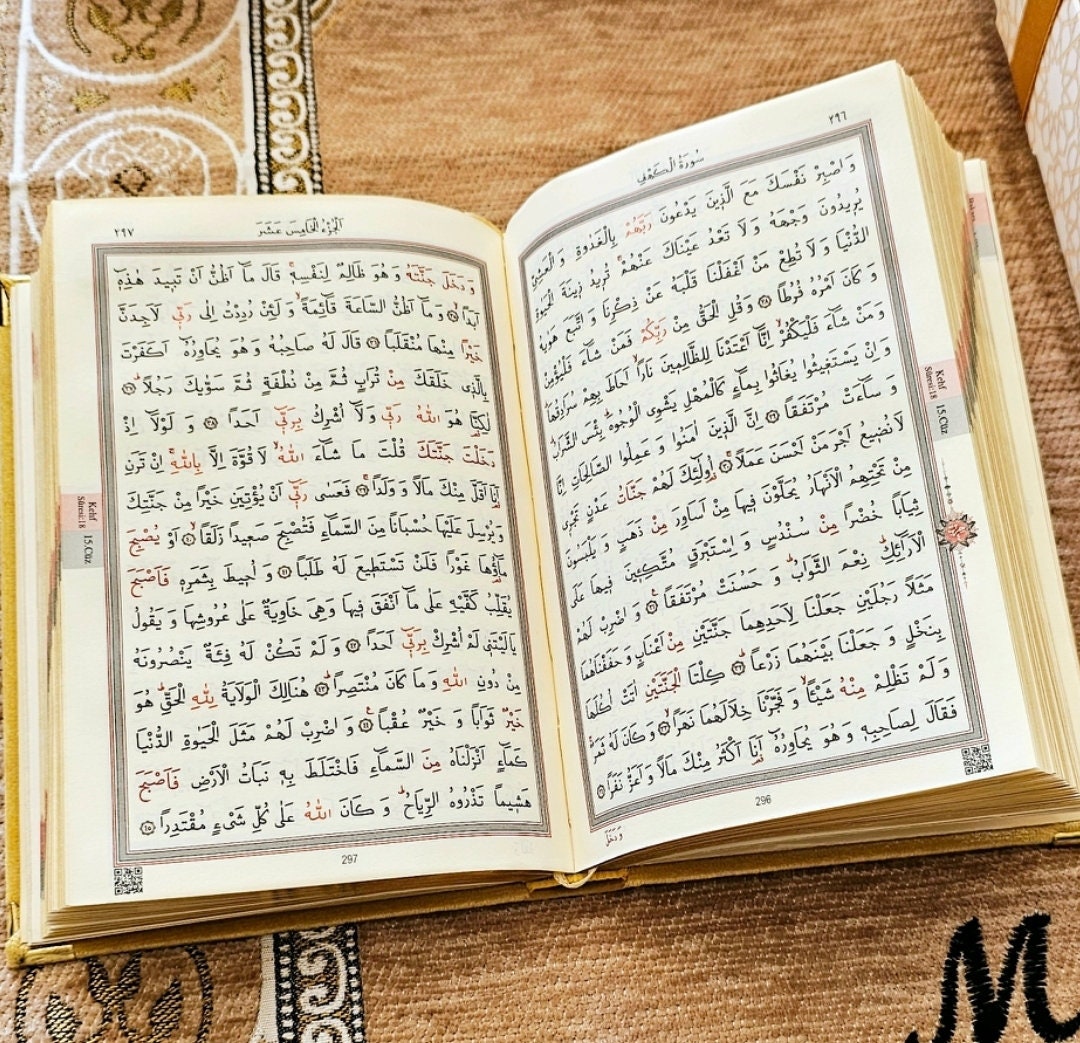 ٢٩٦
سُورَةُ الْكَهْفِ
وَاصْبِرْ نَفْسَكَ مَعَ الَّذ۪ينَ يَدْعُونَ رَبَّهُمْ بِالْغَدٰوةِ وَالْعَشِيِّ
يُر۪يدُونَ وَجْهَهُ وَلَا تَعْدُ عَيْنَاكَ عَنْهُمْۚ تُر۪يدُ ز۪ينَةَ الْحَيٰوةِ
الدُّنْيَا وَلَا تُطِعْ مَنْ اَغْفَلْنَا قَلْبَهُ عَنْ ذِكْرِنَا وَاتَّبَعَ هَوٰيهُ
وَكَانَ اَمْرُهُ فُرُطًا ﴿٢٨﴾ وَقُلِ الْحَقُّ مِنْ رَبِّكُمْ۠ فَمَنْ شَٓاءَ فَلْيُؤْمِنْ
وَمَنْ شَٓاءَ فَلْيَكْفُرْۙ اِنَّٓا اَعْتَدْنَا لِلظَّالِم۪ينَ نَارًاۙ اَحَاطَ بِهِمْ سُرَادِقُهَاۜ
وَاِنْ يَسْتَغ۪يثُوا يُغَاثُوا بِمَٓاءٍ كَالْمُهْلِ يَشْوِي الْوُجُوهَۜ بِئْسَ الشَّرَابُۜ
وَسَٓاءَتْ مُرْتَفَقًا ﴿٢٩﴾ اِنَّ الَّذ۪ينَ اٰمَنُوا وَعَمِلُوا الصَّالِحَاتِ اِنَّا
لَا نُض۪يعُ اَجْرَ مَنْ اَحْسَنَ عَمَلًاۚ ﴿٣٠﴾ اُو۬لٰٓئِكَ لَهُمْ جَنَّاتُ عَدْنٍ تَجْر۪ي
مِنْ تَحْتِهِمُ الْاَنْهَارُ يُحَلَّوْنَ ف۪يهَا مِنْ اَسَاوِرَ مِنْ ذَهَبٍ وَيَلْبَسُونَ
ثِيَابًا خُضْرًا مِنْ سُنْدُسٍ وَاِسْتَبْرَقٍ مُتَّكِـ۪ٔينَ ف۪يهَا عَلَى
الْاَرَٓائِكِۜ نِعْمَ الثَّوَابُۜ وَحَسُنَتْ مُرْتَفَقًا۟ ﴿٣١﴾ وَاضْرِبْ لَهُمْ
مَثَلًا رَجُلَيْنِ جَعَلْنَا لِاَحَدِهِمَا جَنَّتَيْنِ مِنْ اَعْنَابٍ وَحَفَفْنَاهُمَا
بِنَخْلٍ وَجَعَلْنَا بَيْنَهُمَا زَرْعًاۜ ﴿٣٢﴾ كِلْتَا الْجَنَّتَيْنِ اٰتَتْ اُكُلَهَا
وَلَمْ تَظْلِمْ مِنْهُ شَيْـًٔاۙ وَفَجَّرْنَا خِلَالَهُمَا نَهَرًاۙ ﴿٣٣﴾ وَكَانَ لَهُ ثَمَرٌۚ
فَقَالَ لِصَاحِبِه۪ وَهُوَ يُحَاوِرُهُٓ اَنَا۬ اَكْثَرُ مِنْكَ مَالًا وَاَعَزُّ نَفَرًا ﴿٣٤﴾
وَدَخَلَ
296
Kehf
Sûresi:18
15.Cüz
٢٩٧
اَلْجُزْءُ الْخَامِسَ عَشَرَ
وَدَخَلَ جَنَّتَهُ وَهُوَ ظَالِمٌ لِنَفْسِه۪ۚ قَالَ مَٓا اَظُنُّ اَنْ تَب۪يدَ هٰذِه۪ٓ
اَبَدًاۙ ﴿٣٥﴾ وَمَٓا اَظُنُّ السَّاعَةَ قَٓائِمَةًۙ وَلَئِنْ رُدِدْتُ اِلٰى رَبّ۪ي لَاَجِدَنَّ
خَيْرًا مِنْهَا مُنْقَلَبًاۚ ﴿٣٦﴾ قَالَ لَهُ صَاحِبُهُ وَهُوَ يُحَاوِرُهُٓ اَكَفَرْتَ
بِالَّذ۪ي خَلَقَكَ مِنْ تُرَابٍ ثُمَّ مِنْ نُطْفَةٍ ثُمَّ سَوّٰيكَ رَجُلًاۜ ﴿٣٧﴾
لٰكِنَّا۬ هُوَ اللّٰهُ رَبّ۪ي وَلَٓا اُشْرِكُ بِرَبّ۪ٓي اَحَدًا ﴿٣٨﴾ وَلَوْلَٓا اِذْ
دَخَلْتَ جَنَّتَكَ قُلْتَ مَا شَٓاءَ اللّٰهُۙ لَا قُوَّةَ اِلَّا بِاللّٰهِۚ اِنْ تَرَنِ
اَنَا۬ اَقَلَّ مِنْكَ مَالًا وَوَلَدًاۚ ﴿٣٩﴾ فَعَسٰى رَبّ۪ٓي اَنْ يُؤْتِيَنِ خَيْرًا مِنْ جَنَّتِكَ
وَيُرْسِلَ عَلَيْهَا حُسْبَانًا مِنَ السَّمَٓاءِ فَتُصْبِحَ صَع۪يدًا زَلَقًاۙ ﴿٤٠﴾ اَوْ يُصْبِحَ
مَٓاؤُ۬هَا غَوْرًا فَلَنْ تَسْتَط۪يعَ لَهُ طَلَبًا ﴿٤١﴾ وَاُح۪يطَ بِثَمَرِه۪ فَاَصْبَحَ
يُقَلِّبُ كَفَّيْهِ عَلٰى مَٓا اَنْفَقَ ف۪يهَا وَهِيَ خَاوِيَةٌ عَلٰى عُرُوشِهَا وَيَقُولُ
يَا لَيْتَن۪ي لَمْ اُشْرِكْ بِرَبّ۪ٓي اَحَدًا ﴿٤٢﴾ وَلَمْ تَكُنْ لَهُ فِئَةٌ يَنْصُرُونَهُ
مِنْ دُونِ اللّٰهِ وَمَا كَانَ مُنْتَصِرًاۜ ﴿٤٣﴾ هُنَالِكَ الْوَلَايَةُ لِلّٰهِ الْحَقِّۜ هُوَ
خَيْرٌ ثَوَابًا وَخَيْرٌ عُقْبًا۟ ﴿٤٤﴾ وَاضْرِبْ لَهُمْ مَثَلَ الْحَيٰوةِ الدُّنْيَا
كَمَٓاءٍ اَنْزَلْنَاهُ مِنَ السَّمَٓاءِ فَاخْتَلَطَ بِه۪ نَبَاتُ الْاَرْضِ فَاَصْبَحَ
هَش۪يمًا تَذْرُوهُ الرِّيَاحُۜ وَكَانَ اللّٰهُ عَلٰى كُلِّ شَيْءٍ مُقْتَدِرًا ﴿٤٥﴾
297
Kehf
Sûresi:18
15.Cüz
M